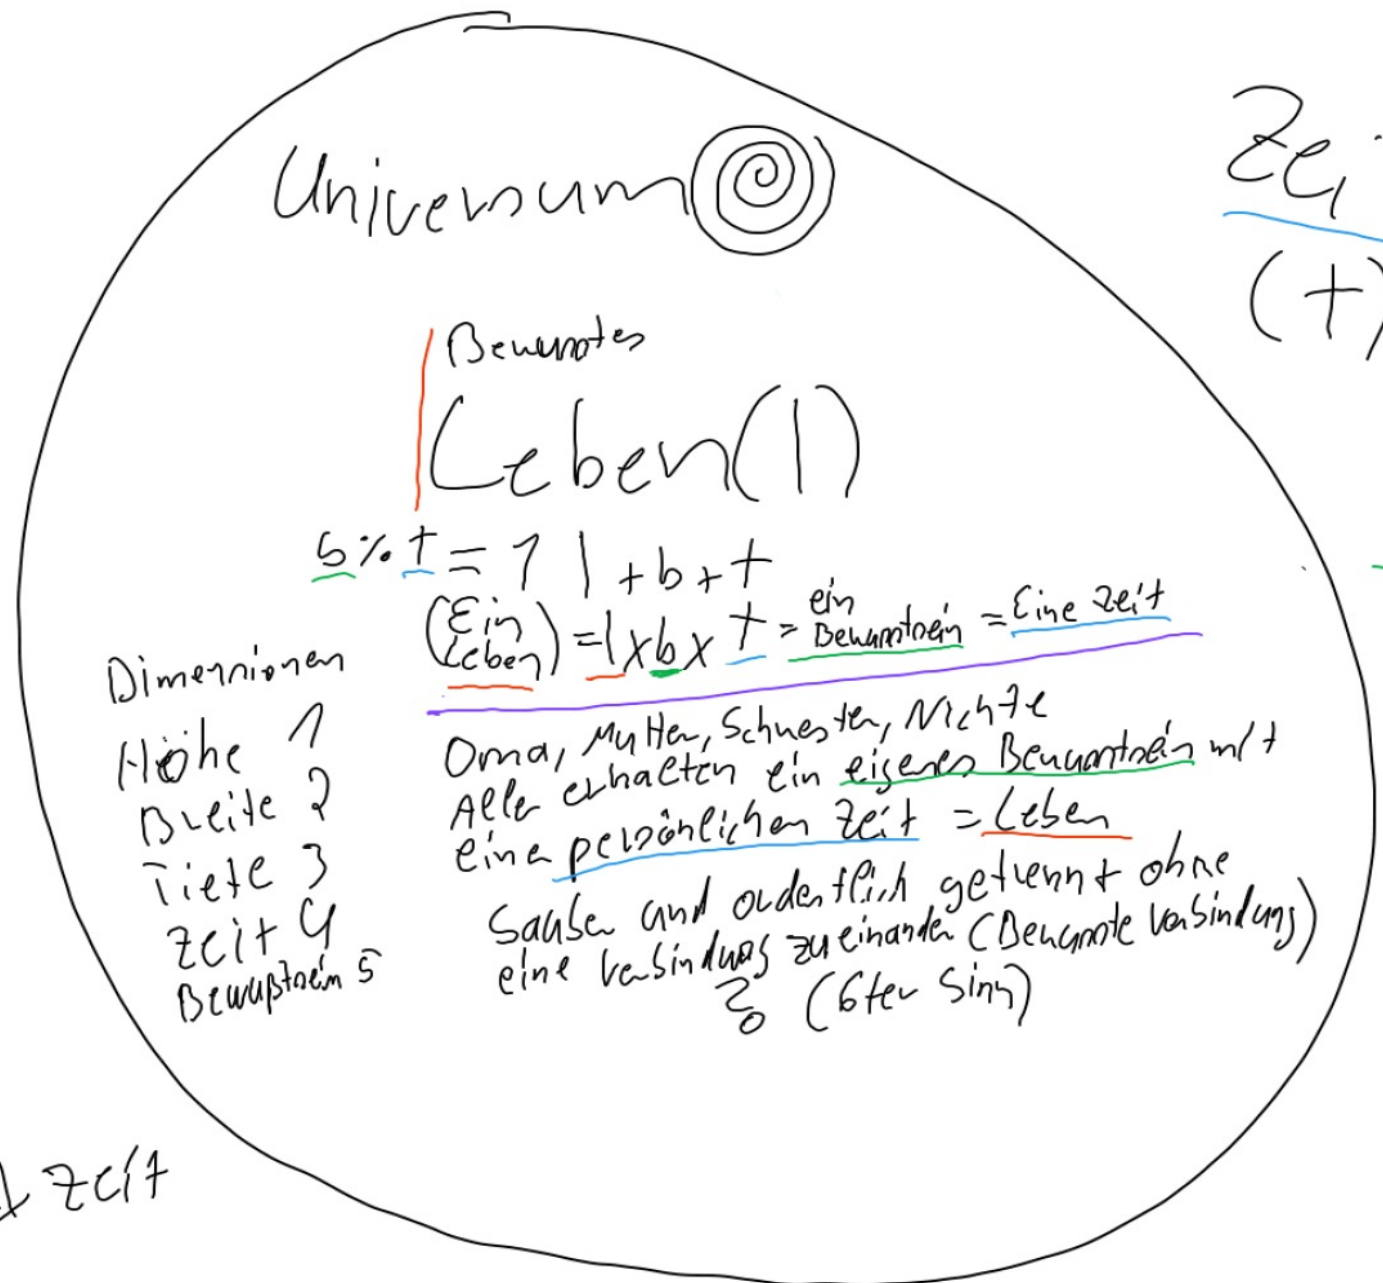 Universum
Zei
(t)
Bewusstes
Leben(l)
b % t = 1 l + b + t
(Ein Leben) = l x b x t = ein Bewusstsein = Eine Zeit
Dimensionen
Höhe 1
Breite 2
Tiefe 3
Zeit 4
Bewußtsein 5
Oma, Mutter, Schwester, Nichte
Alle erhalten ein eigenes Bewusstsein mit
einer persönlichen Zeit = Leben
Sauber und ordentlich getrennt ohne
eine Verbindung zueinander (Bewusste Verbindung)
? (6ter Sinn)
Zeit